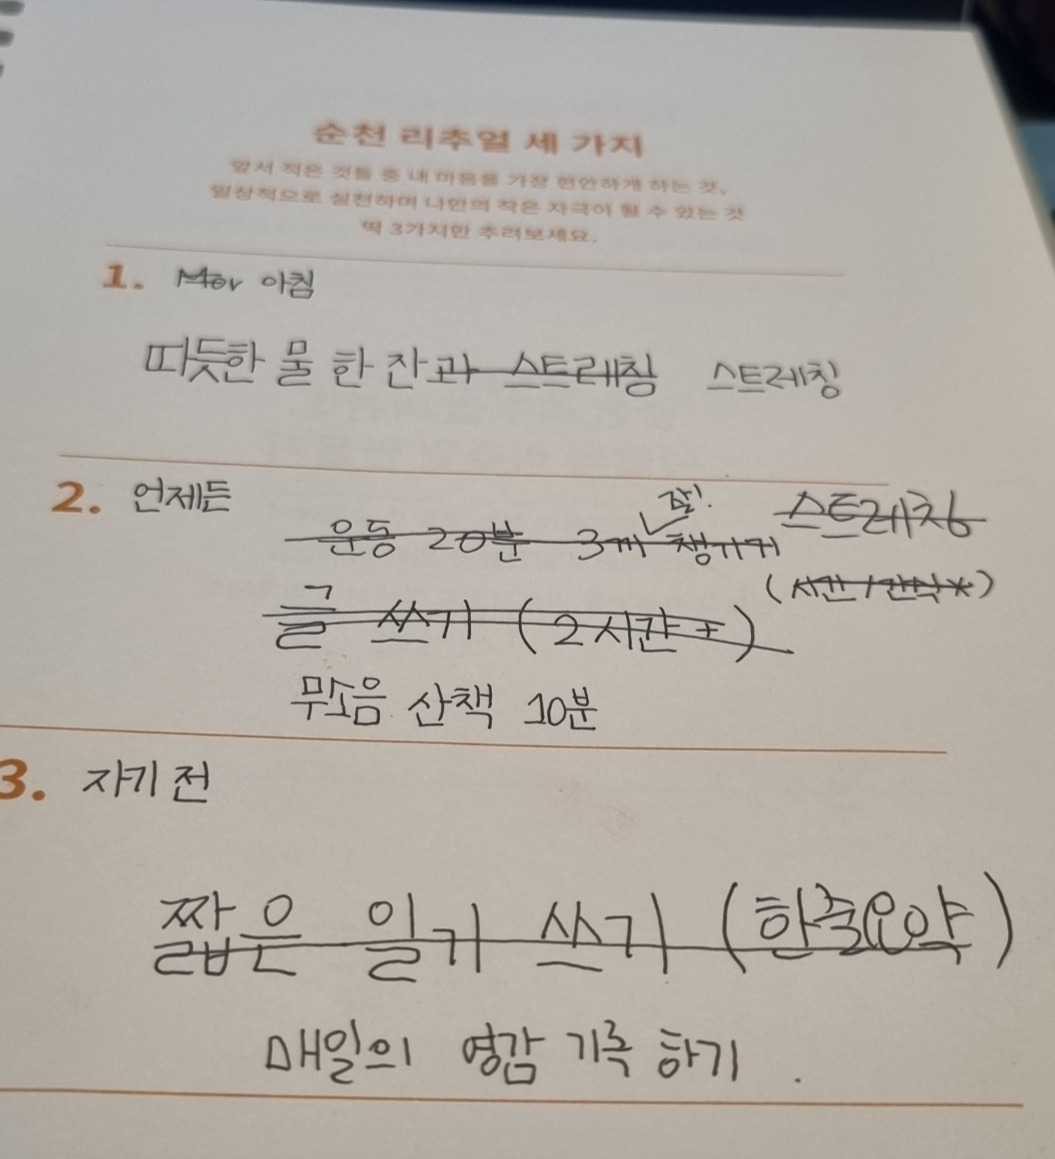 순천 리추얼 세 가지
앞서 적은 것들 중 내 마음을 가장 편안하게 하는 것,
일상적으로 실천하며 나만의 작은 자극이 될 수 있는 것
딱 3가지만 추려보세요.
1. Mor 아침
따듯한 물 한 잔과 스트레칭 스트레칭
2. 언제든
잘!
운동 20분 3끼 챙기기 스트레칭
글 쓰기 (2시간+)
무소음 산책 10분
3. 자기 전
짧은 일기 쓰기 (한줄요약)
매일의 영감 기록 하기.